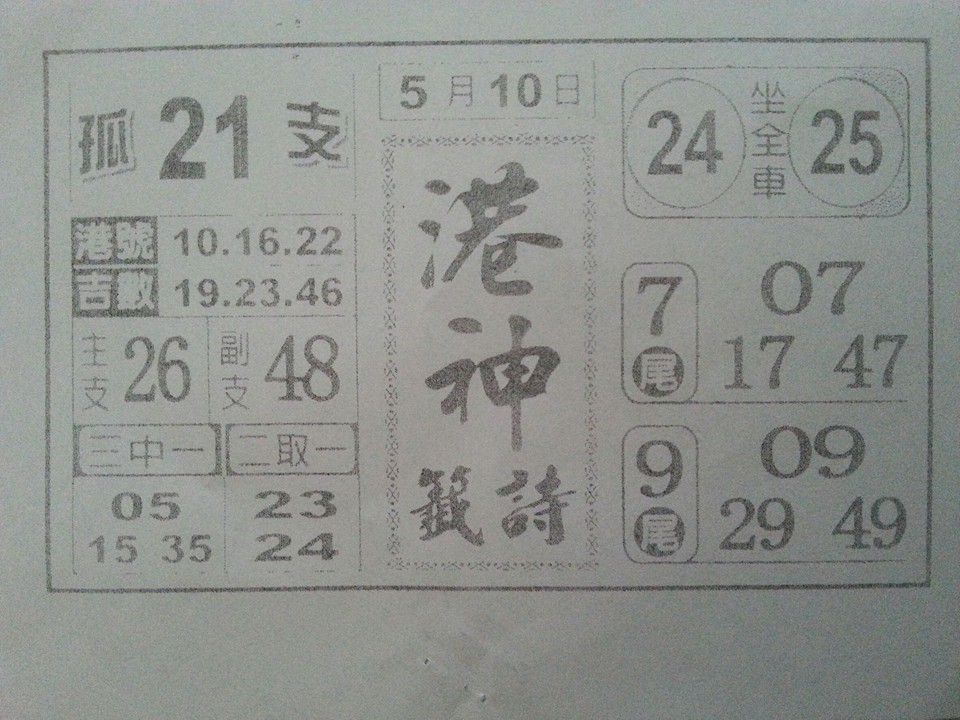 孤 21 支
港號 10.16.22
吉數 19.23.46
主支 26 副支 48
三中一 二取一
05 23
15 35 24
5月10日
港神
籤詩
24 坐全車 25
7尾 07
17 47
9尾 09
29 49